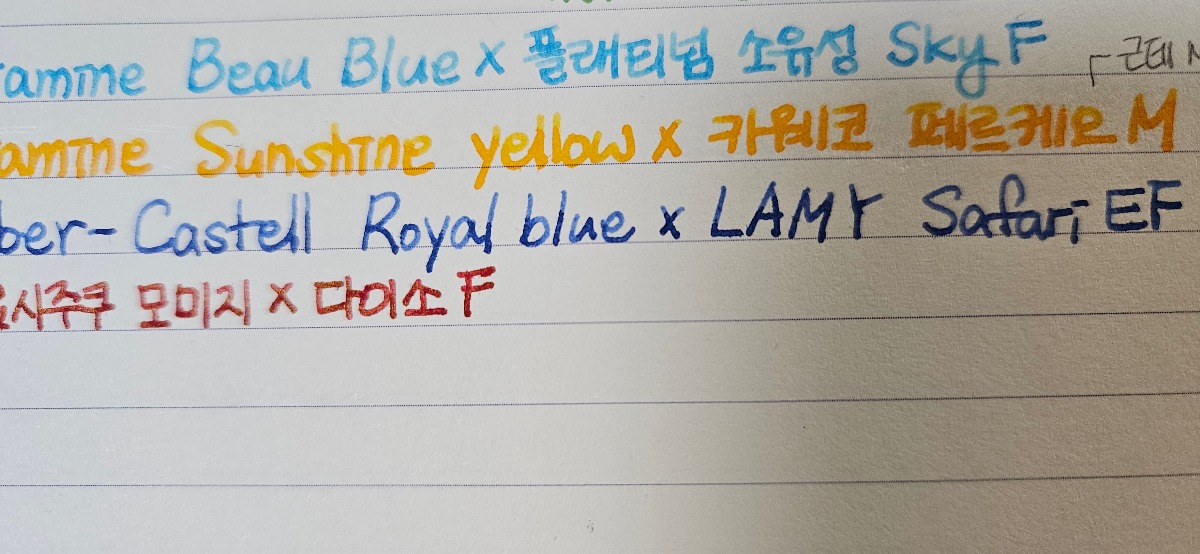 amine Beau Blue x 플래티넘 소유성 Sky F
근데
amine Sunshine yellow x 카웨코 페르케오 M
ber-Castell Royal blue x LAMY Safari EF
시주쿠 모미지 x 다이소 F